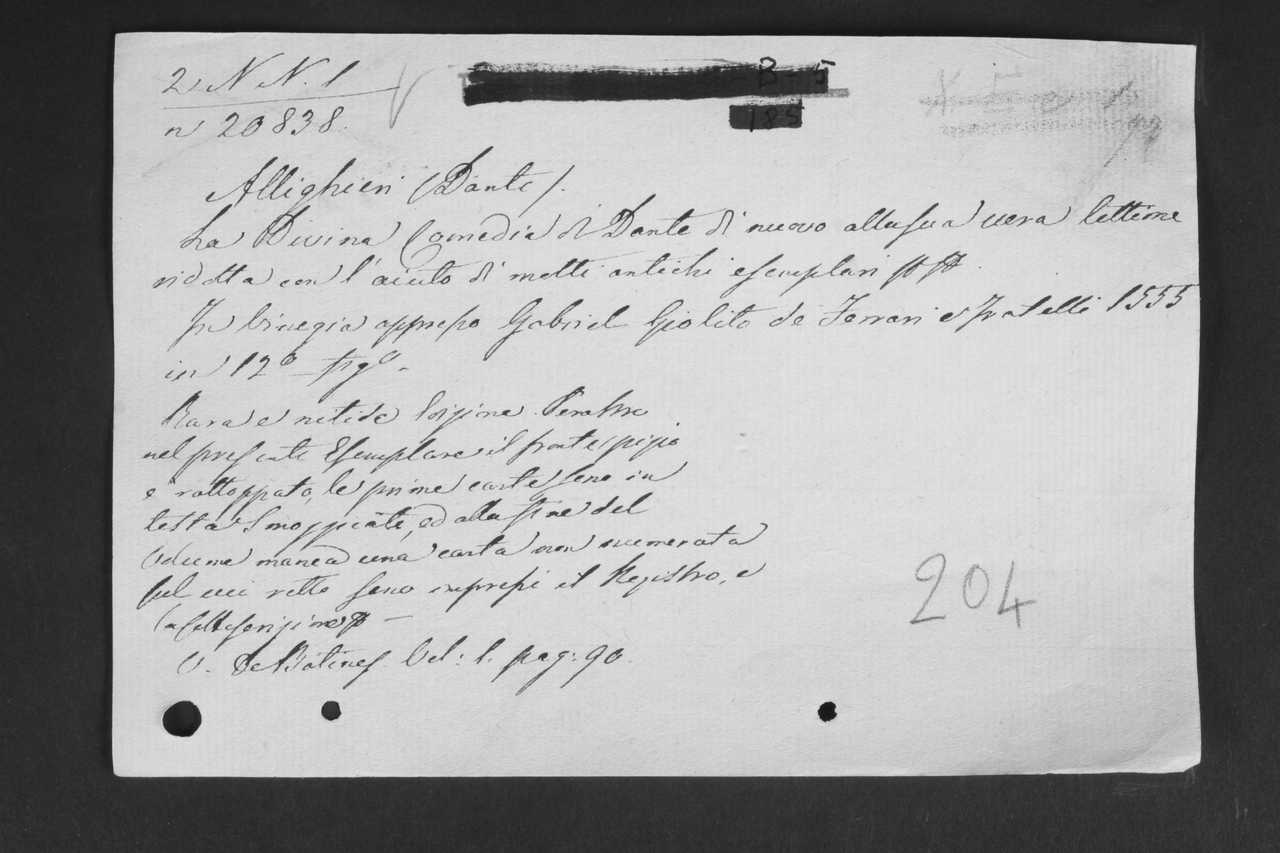 2 N N. 1
B - 5
n 20838.
185
Allighieri (Dante).
La Divina Comedia di Dante di nuovo alla sua vera lettione
ridotta con l'aiuto di molti antichi esemplari
In Vinegia appresso Gabriel Giolito de Ferrari e Fratelli 1555
in 12º figº.
Rara e nitida Edizione. Peraltro
nel presente Esemplare il frontespizio
è rattoppato, le prime carte sono in
testa smozzicate, ed alla fine del
Volume manca una carta non numerata
sul cui retto sono impressi il Registro, e
la sottoscrizione
V. De Batines. Vol: 1. pag: 90.
204